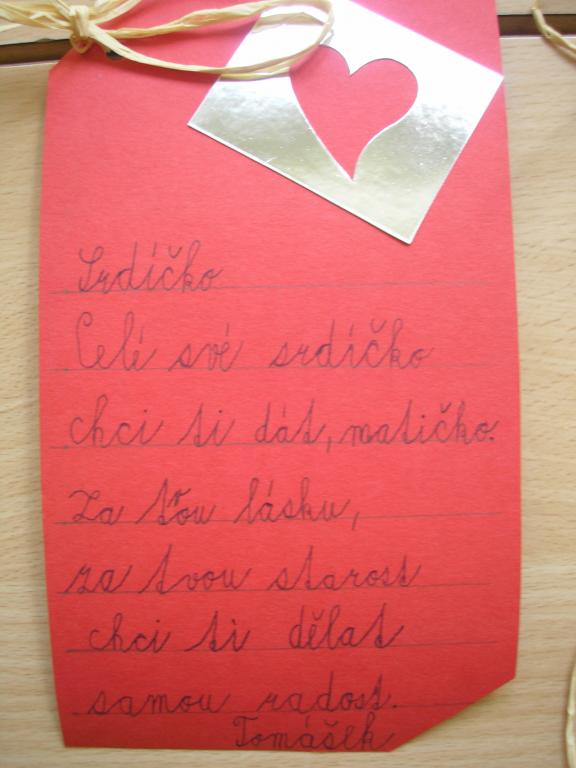 Srdíčko
Celé své srdíčko
chci ti dát, matičko.
Za tvou lásku,
za tvou starost
chci ti dělat
samou radost.
Tomášek